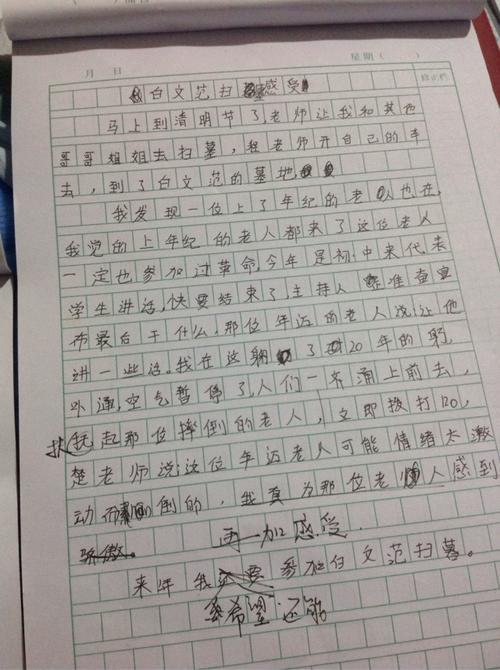 月 日 星期( )
修正栏
白文范扫墓感受
马上到清明节了,老师让我和其他
哥哥姐姐去扫墓,程老师开自己的车
去,到了白文范的墓地。
我发现一位上了年纪的老人也在,
我觉的上年纪的老人都来了这位老人
一定也参加过革命,今年是初中来代表
学生讲话,快要结束了,主持人准查宣
布最后干什么,那位年迈的老人说让他
讲一些话。我在这躺了20年的
外涌,空气暂停了,人们一齐涌上前去,
扶起那位摔倒的老人,立即拨打120,
楚老师说:这位年迈老人可能情绪太激
动而倒的,我真为那位老人感到
骄傲。 再加感受
来年我还要参加白文范扫墓。
希望还能